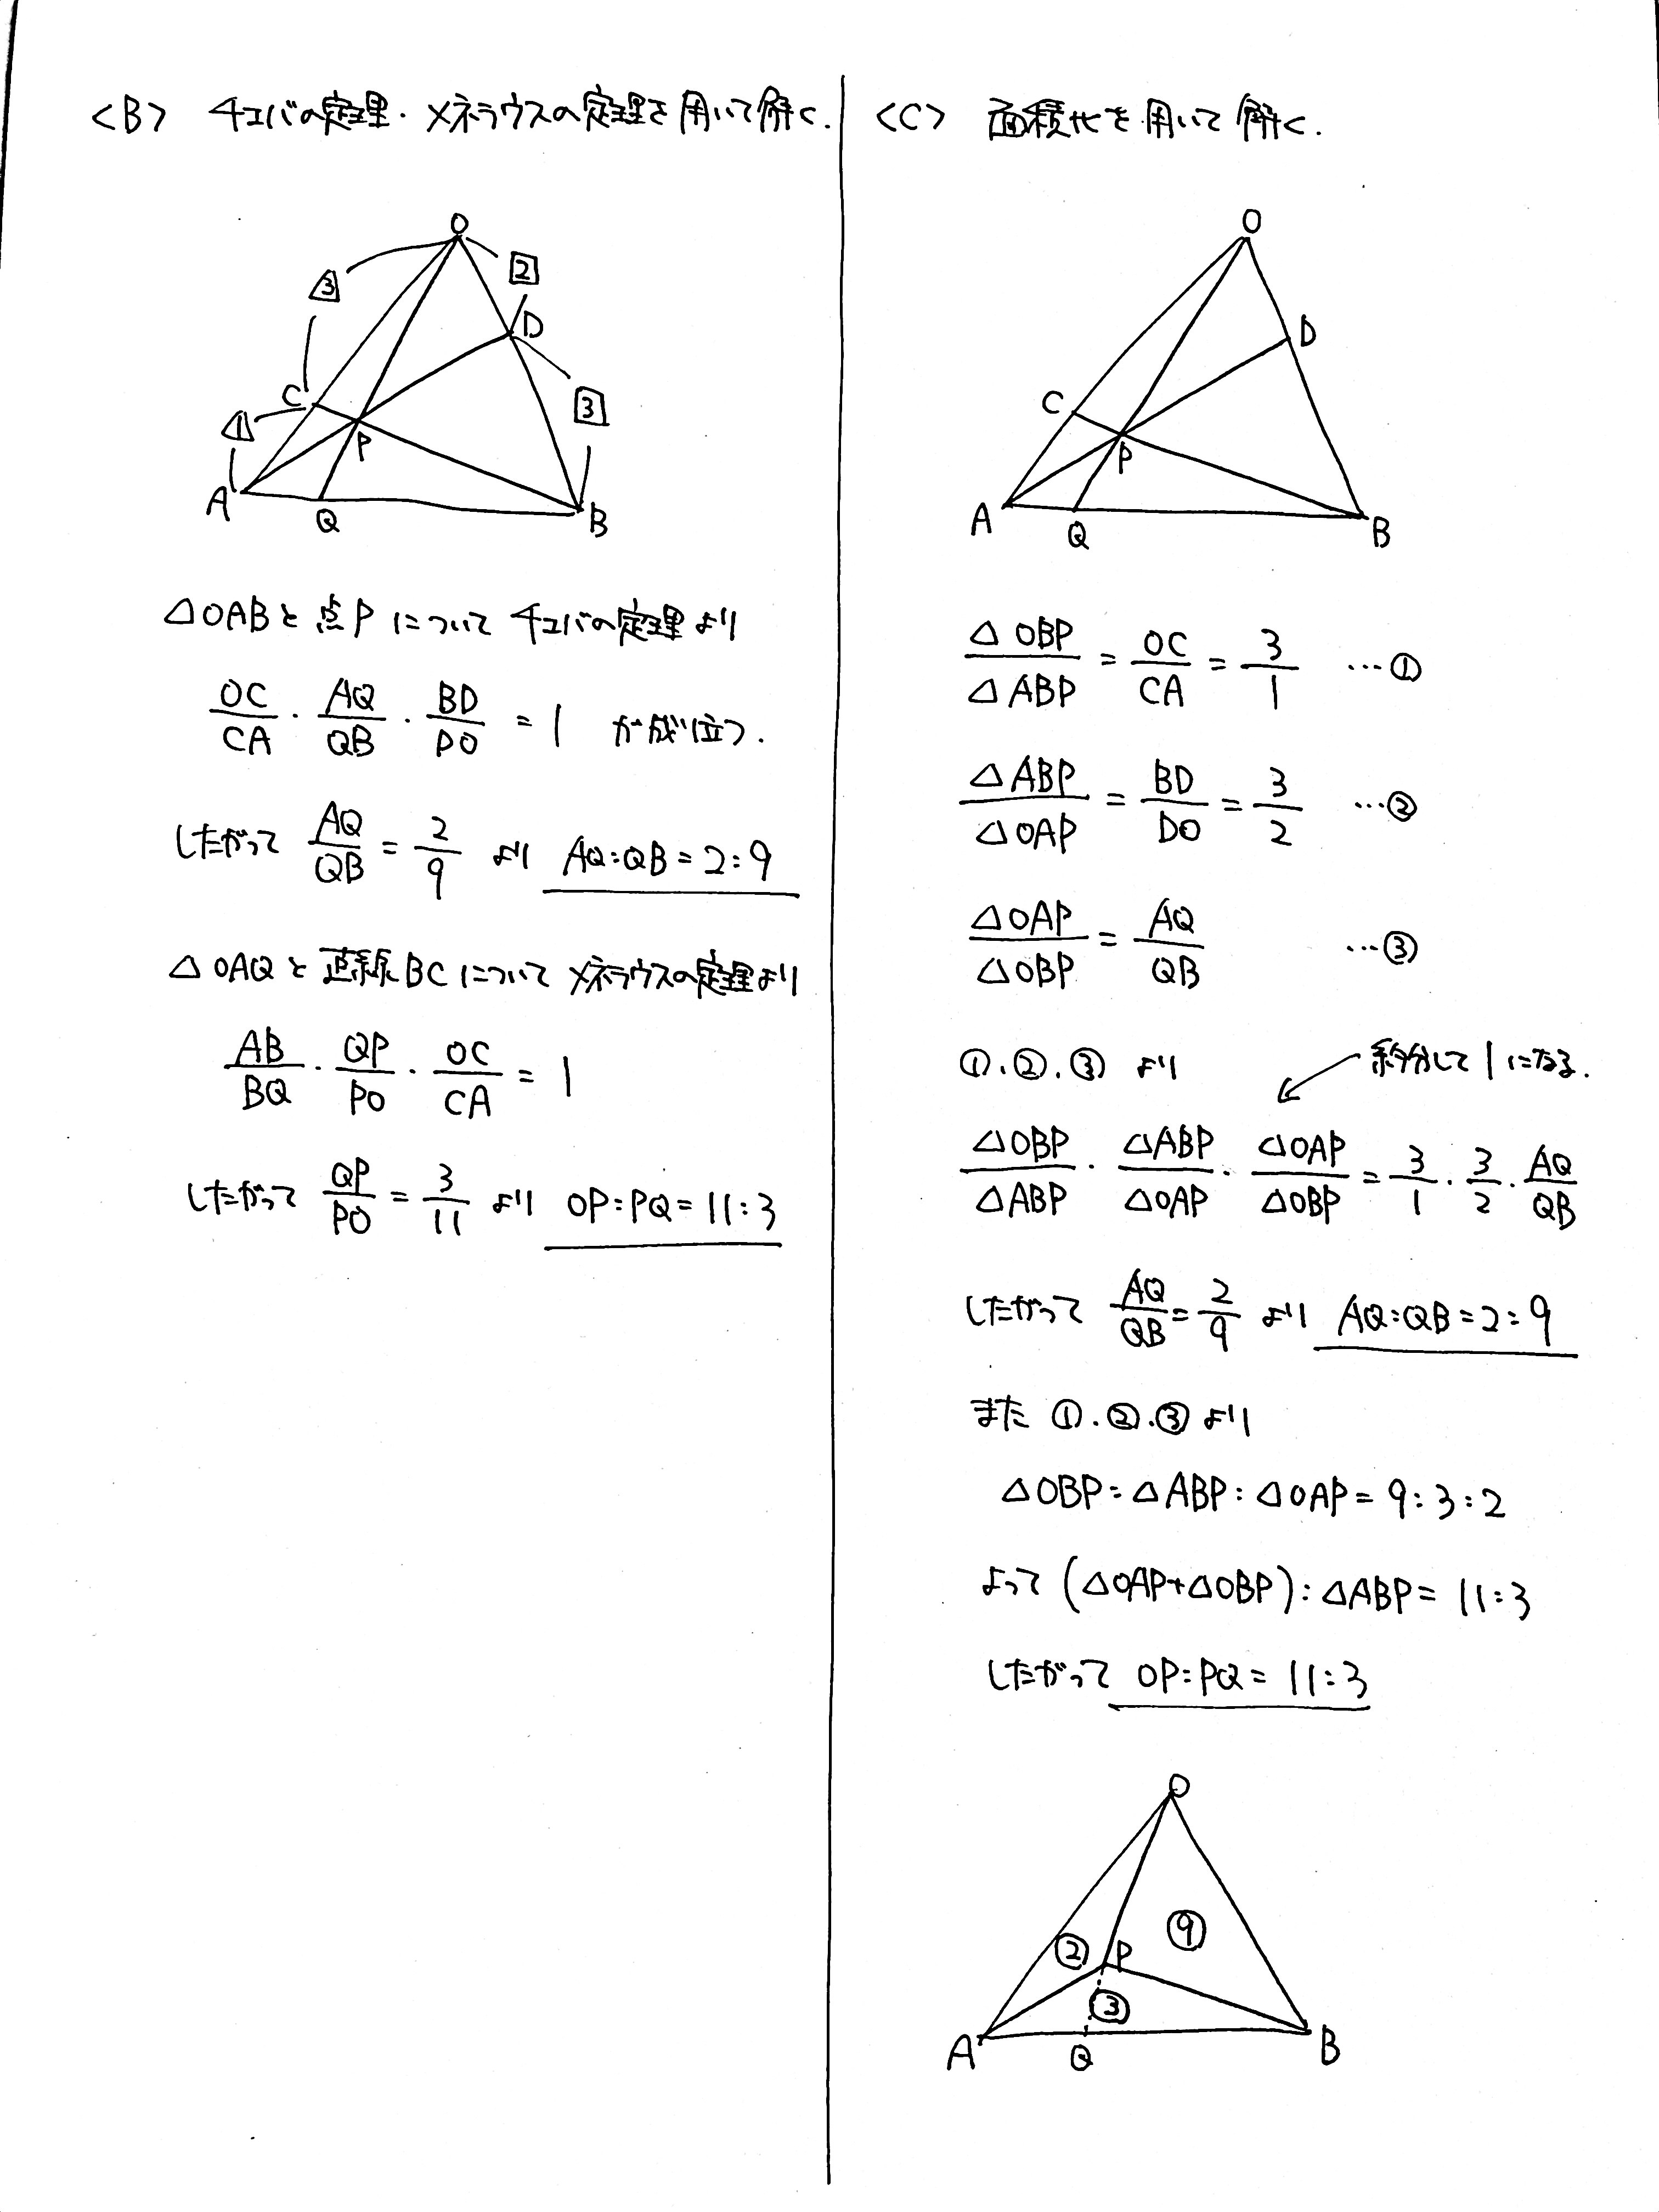 <B> チェバの定理・メネラウスの定理を用いて解く.
O
3
2
D
C
3
1
P
A
Q
B
△OABと点Pについてチェバの定理より
OC/CA・AQ/QB・BD/DO = 1 が成り立つ.
したがって AQ/QB = 2/9 より AQ:QB = 2:9
△OAQと直線BCについてメネラウスの定理より
AB/BQ・QP/PO・OC/CA = 1
したがって QP/PO = 3/11 より OP:PQ = 11:3
<C> 面積比を用いて解く.
O
D
C
P
A
Q
B
△OBP/△ABP = OC/CA = 3/1 …①
△ABP/△OAP = BD/DO = 3/2 …②
△OAP/△OBP = AQ/QB …③
①.②.③ より
約分して1になる.
△OBP/△ABP・△ABP/△OAP・△OAP/△OBP = 3/1・3/2・AQ/QB
したがって AQ/QB = 2/9 より AQ:QB = 2:9
また ①.②.③より
△OBP:△ABP:△OAP = 9:3:2
よって (△OAP+△OBP):△ABP = 11:3
したがって OP:PQ = 11:3
O
⑨
② P
③
A
Q
B